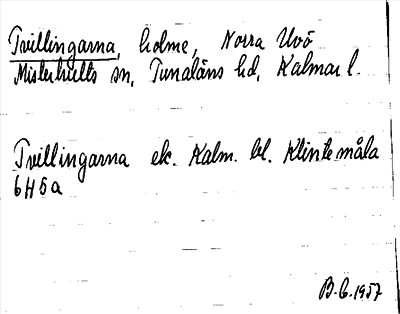 Tvillingarna, holme, Norra Uvö
Misterhults sn, Tunaläns hd, Kalmar l.
Tvillingarna ek. Kalm. bl. Klintemåla
6H5a
B.G. 1957